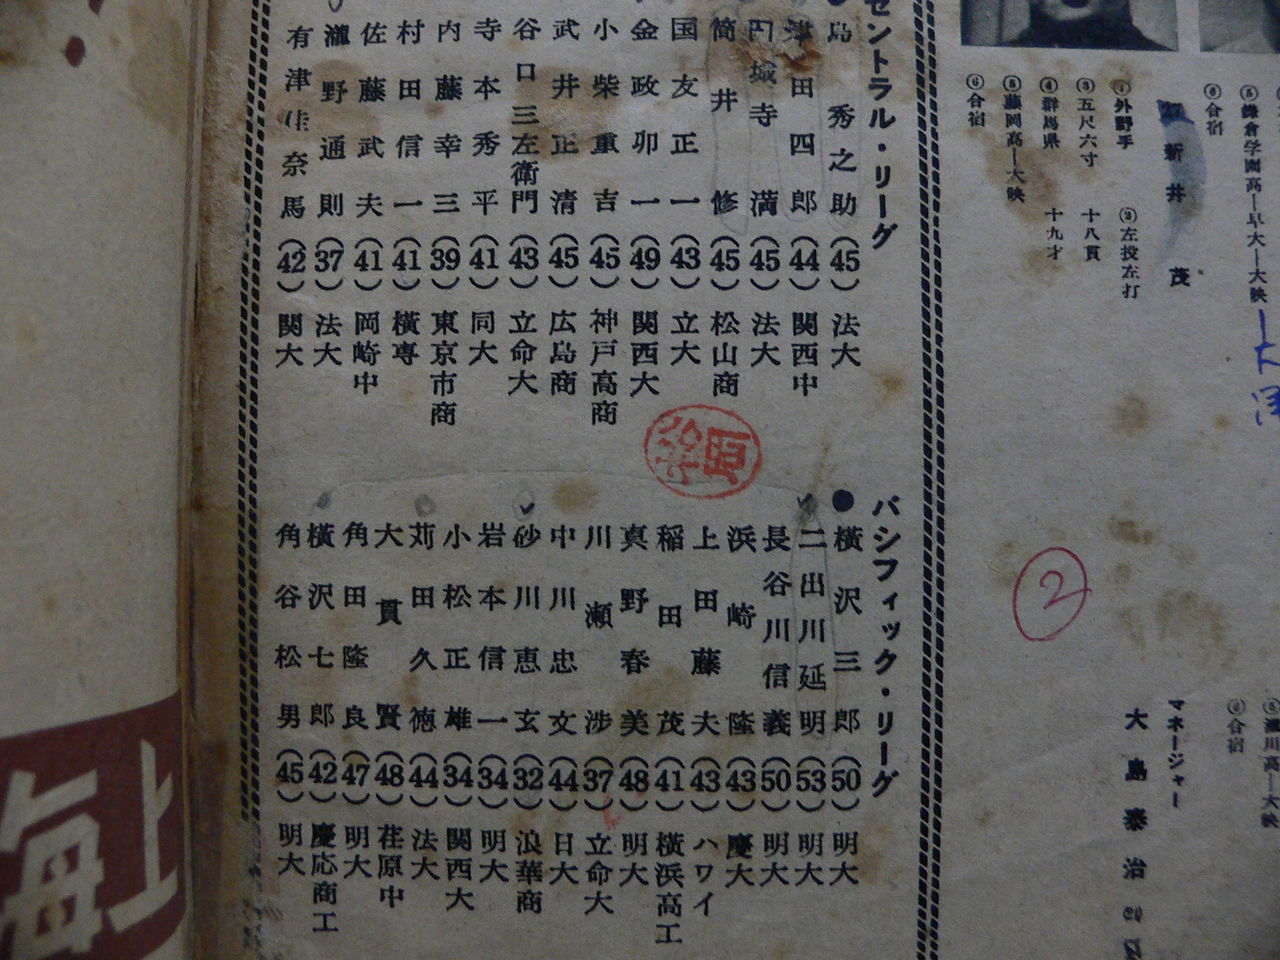 ⑥合宿
⑤鎌倉学園高―早大―大映
新井茂
①外野手　②左投左打
③五尺六寸　十八貫
④群馬県　十九才
⑤藤岡高―大映
⑥合宿
⑥合宿
マネージャー
大島泰治
②
セントラル・リーグ
島秀之助（45）法大
津田四郎（44）関西中
円城寺満（45）法大
筒井修（45）松山商
国友正一（43）立大
金政卯一（49）関西大
小柴重吉（45）神戸高商
武井正清（45）広島商
谷口三左衛門（43）立命大
寺本秀平（41）同大
内藤幸三（39）東京市商
村田信一（41）横専
佐藤武夫（41）岡崎中
瀧野通則（37）法大
有津佳奈馬（42）関大
パシフィック・リーグ
横沢三郎（50）明大
二出川延明（53）明大
長谷川信義（50）明大
浜崎隆（43）慶大
上田藤夫（43）ハワイ
稲田茂（41）横浜高工
真野春美（48）明大
川瀬渉（37）立命大
中川忠文（44）日大
砂川恵玄（32）浪華商
岩本信一（34）明大
小松正雄（34）関西大
苅田久徳（44）法大
大貫賢（48）荏原中
角田隆良（47）明大
横沢七郎（42）慶応商工
角谷松男（45）明大
海上